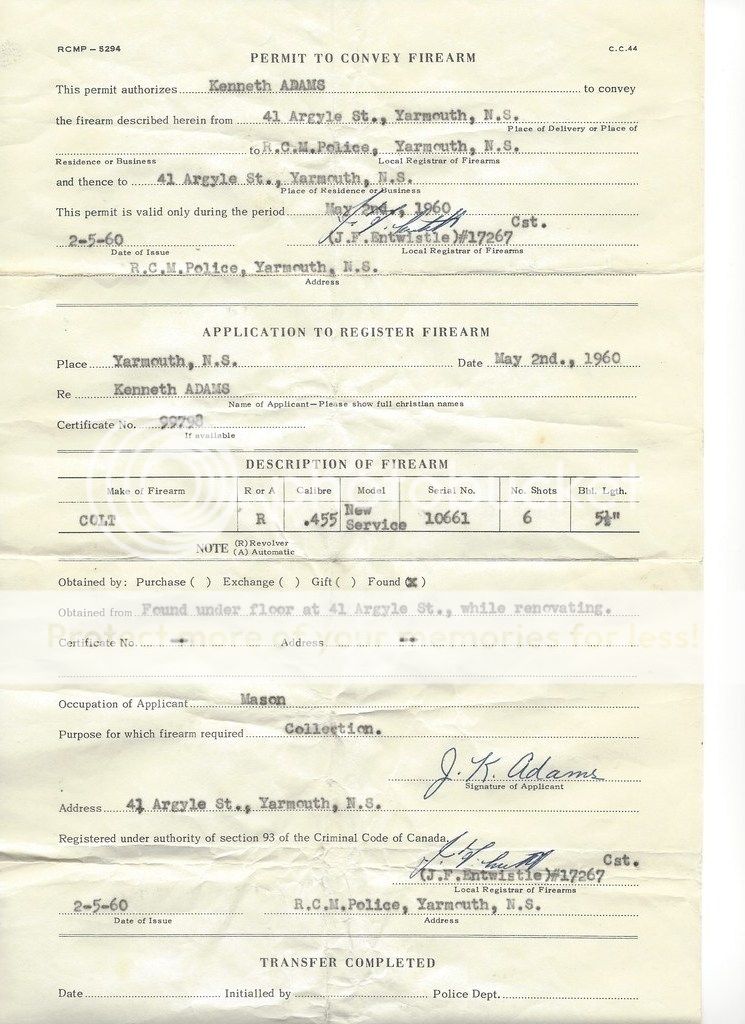 RCMP – 5294
C.C.44
PERMIT TO CONVEY FIREARM
This permit authorizes Kenneth ADAMS to convey
the firearm described herein from 41 Argyle St., Yarmouth, N.S.
Place of Delivery or Place of
to R.C.M.Police, Yarmouth, N.S.
Residence or Business Local Registrar of Firearms
and thence to 41 Argyle St., Yarmouth, N.S.
Place of Residence or Business
This permit is valid only during the period May 2nd., 1960
Cst.
2-5-60 (J.F.Entwistle)#17267
Date of Issue Local Registrar of Firearms
R.C.M.Police, Yarmouth, N.S.
Address
APPLICATION TO REGISTER FIREARM
Place Yarmouth, N.S. Date May 2nd., 1960
Re Kenneth ADAMS
Name of Applicant—Please show full christian names
Certificate No. 99798
If available
DESCRIPTION OF FIREARM
Make of Firearm R or A Calibre Model Serial No. No. Shots Bbl. Lgth.
COLT R .455 New Service 10661 6 5½"
NOTE (R) Revolver
(A) Automatic
Obtained by: Purchase ( ) Exchange ( ) Gift ( ) Found (X)
Obtained from Found under floor at 41 Argyle St., while renovating.
Protect more of your memories for less!
Certificate No. -- Address --
Occupation of Applicant Mason
Purpose for which firearm required Collection.
J. K. Adams
Signature of Applicant
Address 41 Argyle St., Yarmouth, N.S.
Registered under authority of section 93 of the Criminal Code of Canada.
Cst.
(J.F.Entwistle)#17267
Local Registrar of Firearms
2-5-60 R.C.M.Police, Yarmouth, N.S.
Date of Issue Address
TRANSFER COMPLETED
Date Initialled by Police Dept.